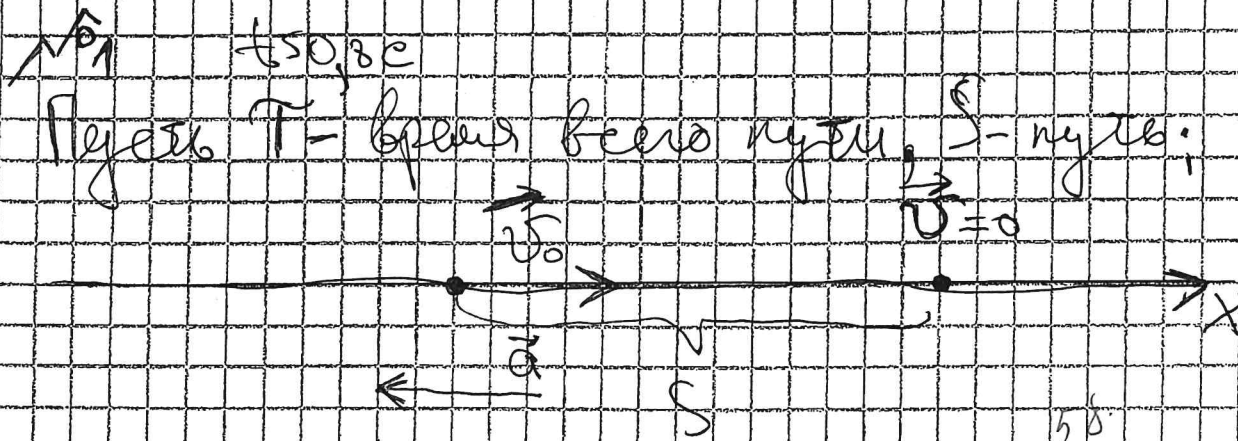 №1 t=0,8с
Пусть T - время всего пути, S - путь.
v₀ v=0
X
a
S
5б